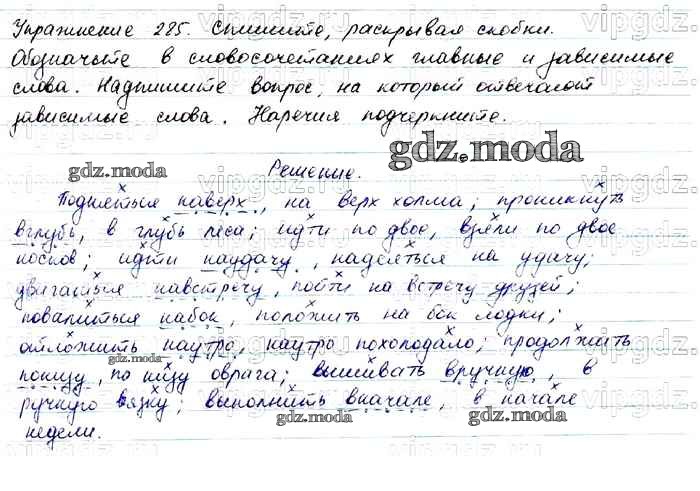 Упражнение 285. Спишите, раскрывая скобки.
Обозначьте в словосочетаниях главные и зависимые
слова. Надпишите вопрос, на который отвечают
зависимые слова. Наречия подчеркните.
gdz.moda
Решение.
gdz.moda
Подняться наверх, на верх холма; проникнуть
вглубь, в глубь леса; идти по двое, взяли по двое
носков; идти наудачу, надеяться на удачу;
двигаться навстречу, пойти на встречу друзей;
повалиться набок, положить на бок лодки;
отложить наутро, наутро похолодало; продолжить
gdz.moda
понизу, по низу оврага; вышивать вручную, в
ручную вязку; выполнить вначале, в начале
gdz.moda
gdz.moda
недели.